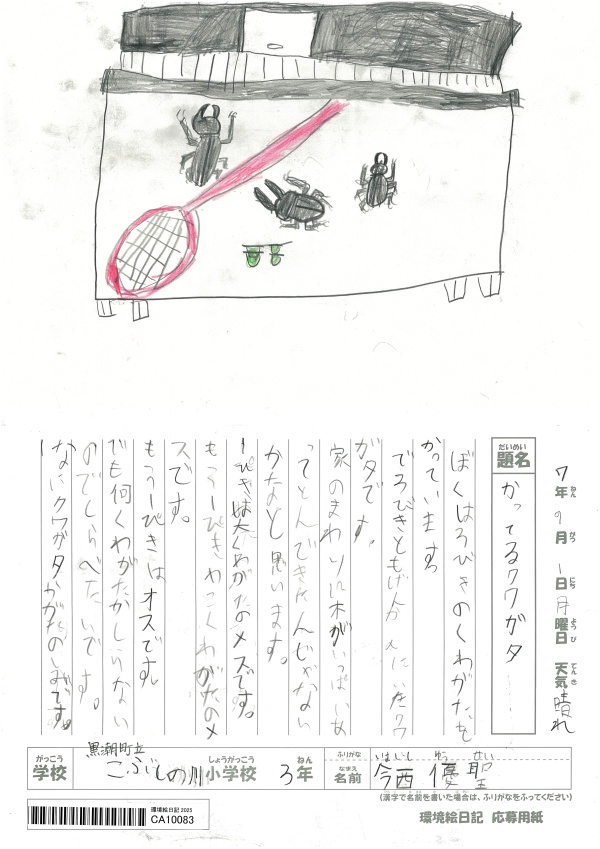 7年9月1日月曜日 天気晴れ
ねん がつ にち ようび てんき
だいめい
題名 かってるクワガタ
ぼくは3びきのくわがたを
かっています。
でろびきともげんかんにいたクワ
ガタです。
家のまわりに木がいっぱいあ
ってとんできたんじゃない
かなと思います。
1ぴきは大くわがたのメスです。
もう1ぴきもこくわがたのメ
スです。
もう1ぴきはオスです。
でも何くわがたかしらない
のでしらべたいです。
なにクワガタか
がっこう
学校 黒潮町立
こぶしの川
しょうがっこう
小学校
ねん
3年
ふりがな いまにし ゆう せい
なまえ
名前 今西 優聖
(漢字で名前を書いた場合は、ふりがなをふってください)
環境絵日記 2025
CA10083
環境絵日記 応募用紙